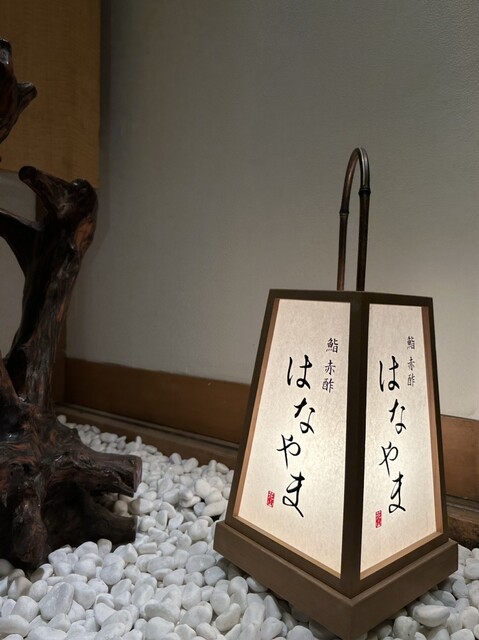 鮨 赤酢
はなやま
鮨 赤酢
はなやま